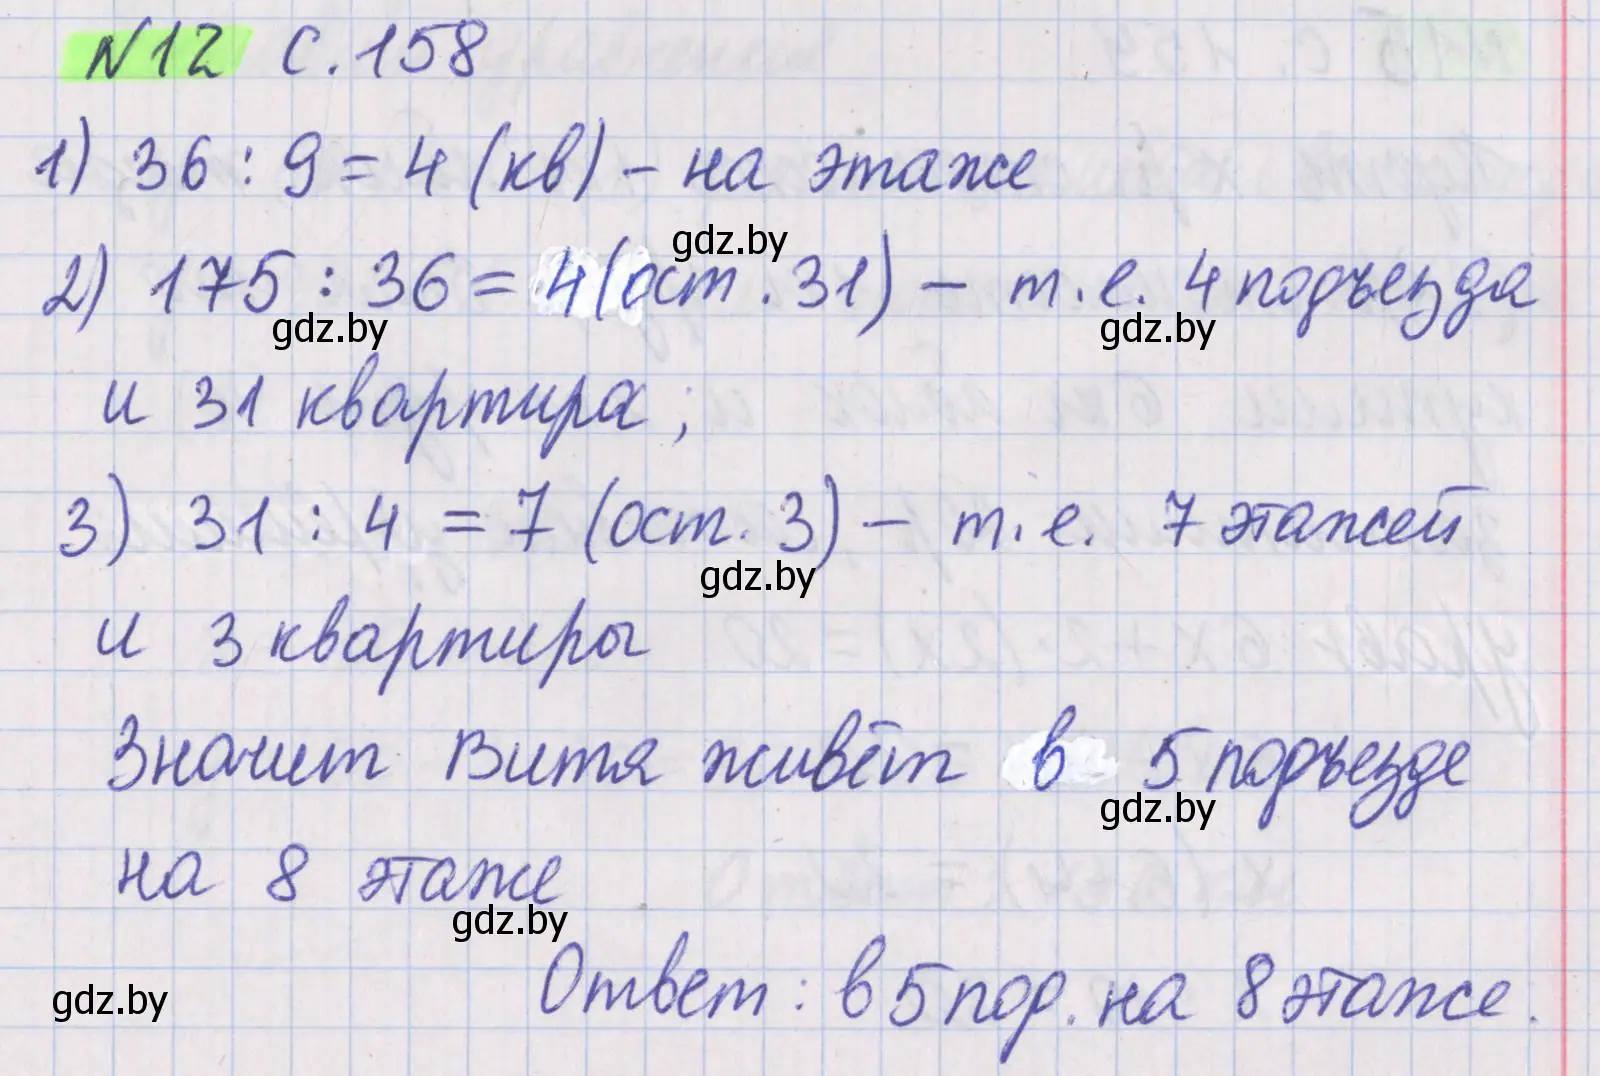 N12 с. 158
1) 36 : 9 = 4 (кв) – на этаже
gdz.by
2) 175 : 36 = 4 (ост. 31) – т.е. 4 подъезда
gdz.by gdz.by
и 31 квартира;
3) 31 : 4 = 7 (ост. 3) – т.е. 7 этажей
gdz.by
и 3 квартиры
Значит Витя живёт в 5 подъезде
gdz.by
на 8 этаже
gdz.by
Ответ: в 5 под. на 8 этаже.
gdz.by